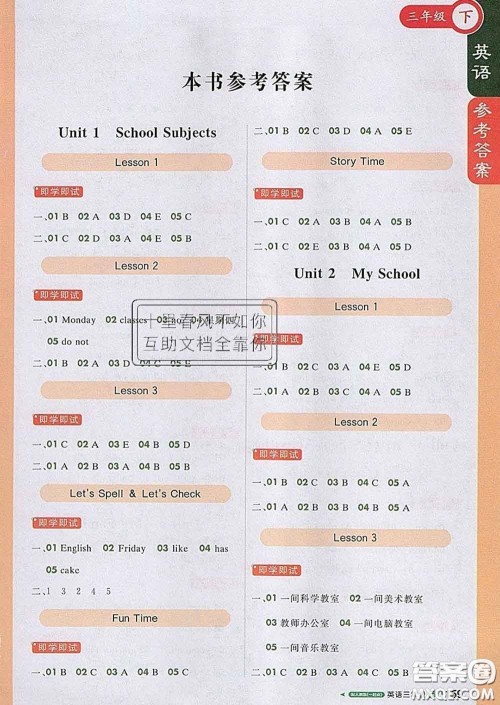 三年级 下
英语
参考答案
本书参考答案
Unit 1 School Subjects
Lesson 1
即学即试
一、01 B 02 A 03 D 04 E 05 C
二、01 D 02 A 03 E 04 C 05 B
Lesson 2
即学即试
一、01 Monday 02 classes 03 no
05 do not
二、01 B 02 A 03 C 04 E 05 D
Lesson 3
即学即试
一、01 C 02 A 03 D 04 B 05 D
二、01 A 02 B 03 B 04 B 05 A
Let's Spell & Let's Check
即学即试
一、01 English 02 Friday 03 like 04 has
05 cake
二、1 3 2 4 5
Fun Time
即学即试
一、01 D 02 A 03 B 04 C 05 B
二、01 B 02 C 03 D 04 A 05 E
Story Time
即学即试
一、01 B 02 C 03 A 04 E 05 D
二、01 C 02 A 03 E 04 B 05 D
Unit 2 My School
Lesson 1
即学即试
Lesson 2
即学即试
一、01 D 02 C 03 B 04 E 05 A
二、01 A 02 B 03 B 04 B 05 A
Lesson 3
即学即试
一、01 一间科学教室 02 一间美术教室
03 教师办公室 04 一间电脑教室
05 一间音乐教室
二、01 C 02 C 03 A 04 B 05 A
十里春风不如你
互助文档全靠你
英语三
答案圈